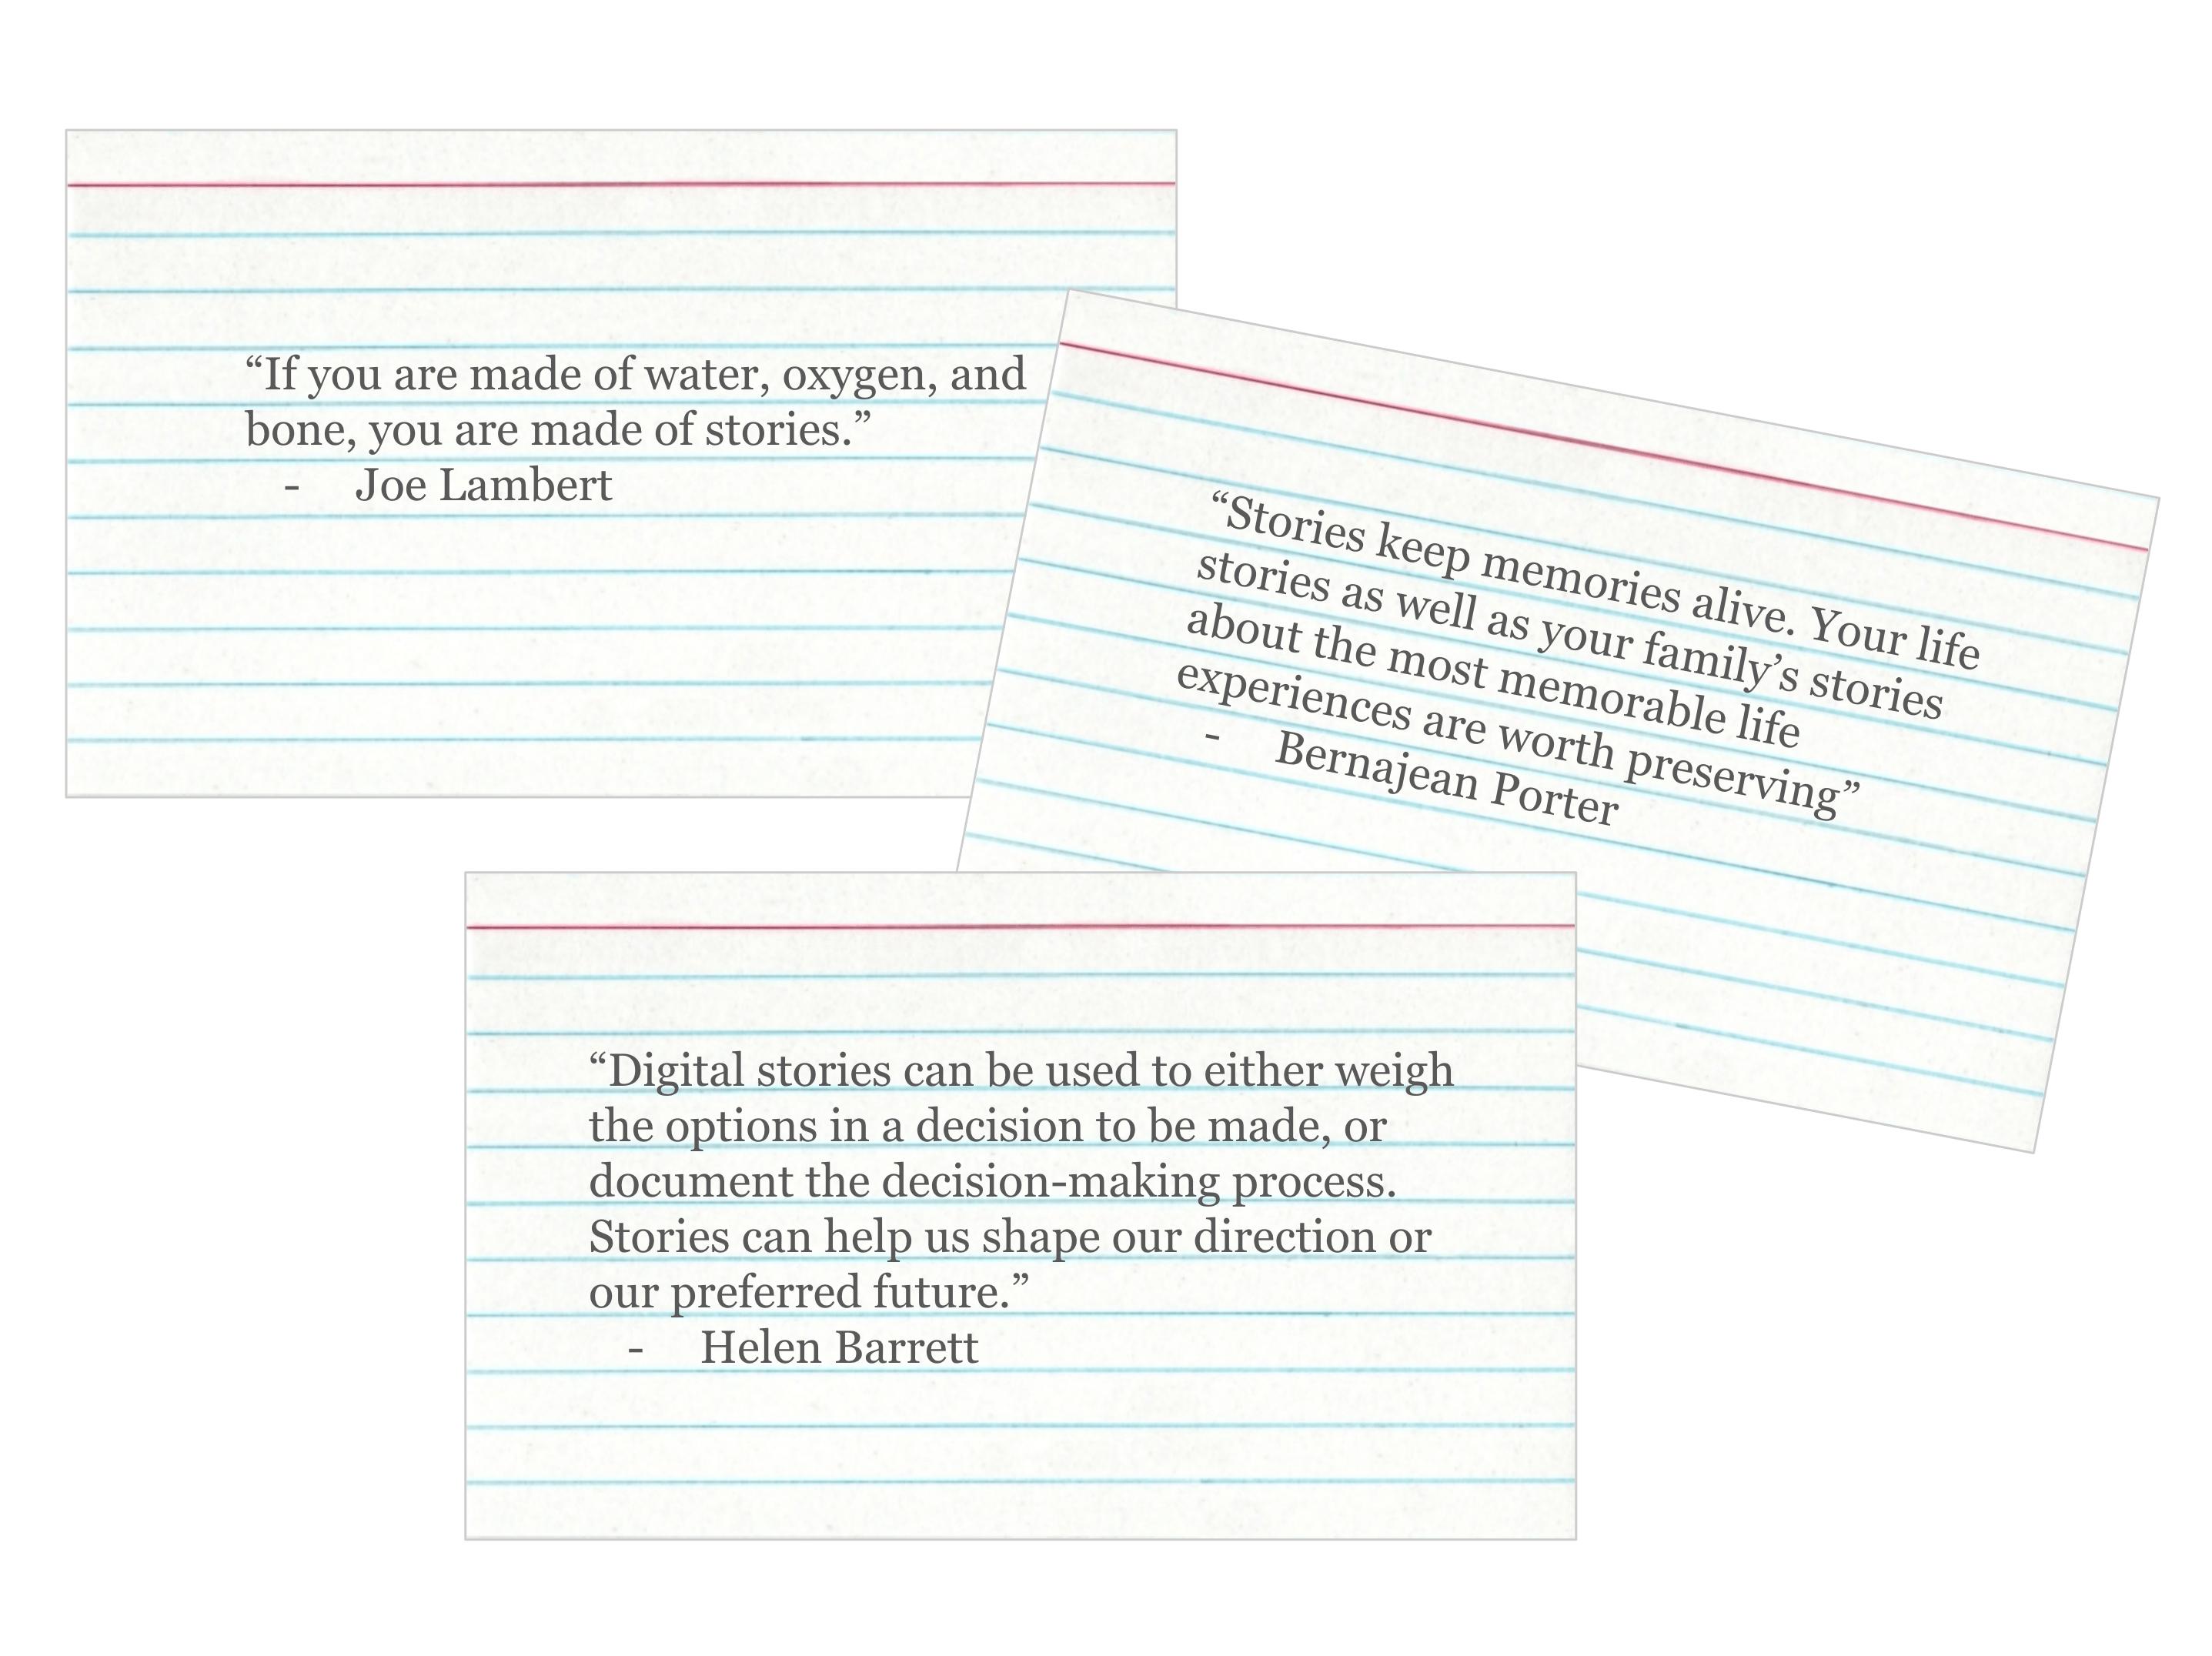 “If you are made of water, oxygen, and
bone, you are made of stories.”
- Joe Lambert
“Stories keep memories alive. Your life
stories as well as your family’s stories
about the most memorable life
experiences are worth preserving”
- Bernajean Porter
“Digital stories can be used to either weigh
the options in a decision to be made, or
document the decision-making process.
Stories can help us shape our direction or
our preferred future.”
- Helen Barrett